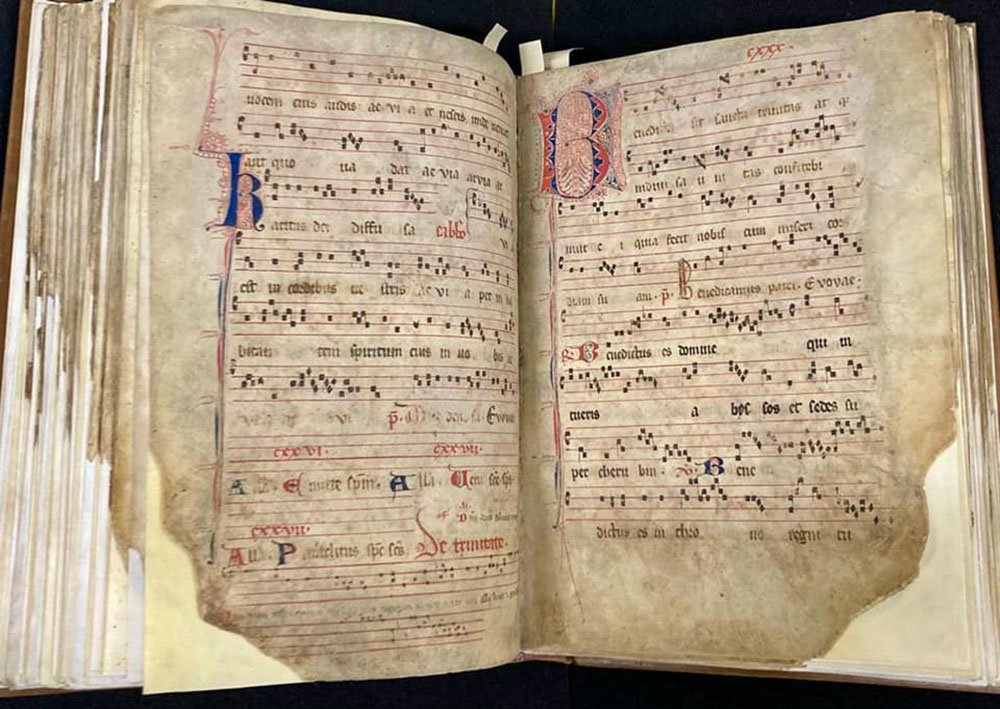 uocem eius audis ae vi a et nescis unde ueniat
aut quo ua dat ae via aevia ae
Karitas dei diffu sa sabbo
est in cordibus ue stris ae vi a per in ha
bitan tem spiritum eius in uo bis
Euouae
cxxvi. cxxvii.
A lla. Emitte spm. A lla. Ueni scs sps
cxxvii.
A lla. Paraclitus spc scs De trinitate.
cxxx.
Benedicta sit sancta trinitas at q
indiui sa u ni tas confitebi
mur e i quia fecit nobis cum miseri cor
diam su am. p. Benedicamus patri. Evovae:
R Benedictus es domine qui in
tueris a bys sos et sedes su
per cheru bin. V. Bene
dictus es in thro no regni tu